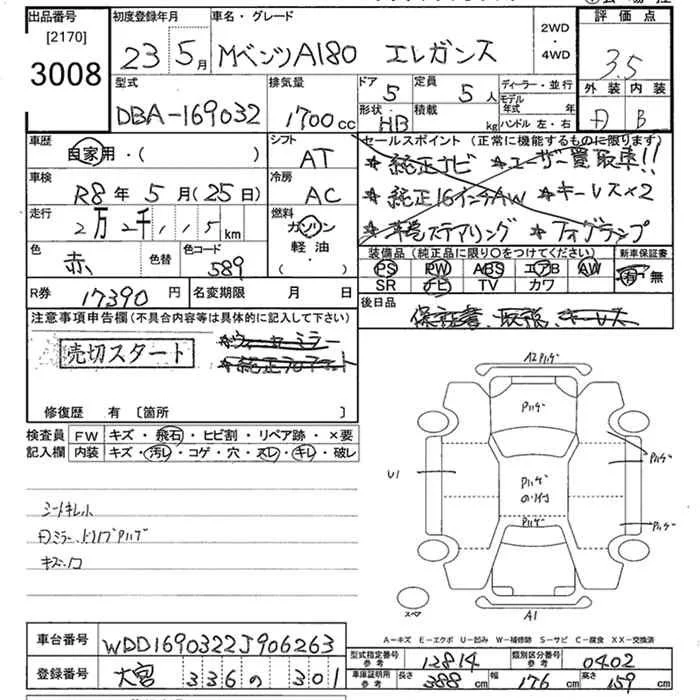 出品番号
[2170]
3008
初度登録年月
23 5月
車名・グレード
Mベンツ A180 エレガンス
2WD
・
4WD
評価点
3.5
外装 内装
B
型式
DBA-169032
排気量
1700cc
ドア
5
定員
5人
形状
HB
積載
kg
ディーラー・並行
モデル年式 年
ハンドル 左・右
車歴
自家用・( )
シフト
AT
セールスポイント(正常に機能するものに限ります)
★純正ナビ ★ユーザー買取車!!
★純正16インチAW ★キーレス×2
★本革ステアリング ★フォグランプ
車検
R8年5月(25日)
冷房
AC
走行
2万2千,,5km
燃料
ガソリン
軽油・
( )
色
赤
色替
色コード
589
装備品(純正品に限り○をつけてください)
PS PW ABS エアB AW
SR ナビ TV カワ
新車保証書
有・無
R券
17390円
名変期限 月 日
後日品
保証書、取説、キーレス
注意事項申告欄(不具合内容等は具体的に記入して下さい)
売切スタート
修復歴 有 〔箇所 〕
検査員
記入欄
FW キズ・飛石・ヒビ割・リペア跡・×要
内装 キズ・汚レ・コゲ・穴・スレ・キレ・破レ
A2 Pハゲ
Pハゲ
Pハゲ
U1
Pハゲ
Pハゲ
Pハゲ
シートキレ
キズ
スペア
A1
A-キズ E-エクボ U-凹み W-補修跡 S-サビ C-腐食 XX-交換済
車台番号
WDD1690322J906263
登録番号
大宮 336 の 301
型式指定番号
参考
12814
類別区分番号
参考
0402
車庫証明用
参考
長さ 388cm
幅 176cm
高さ 159cm